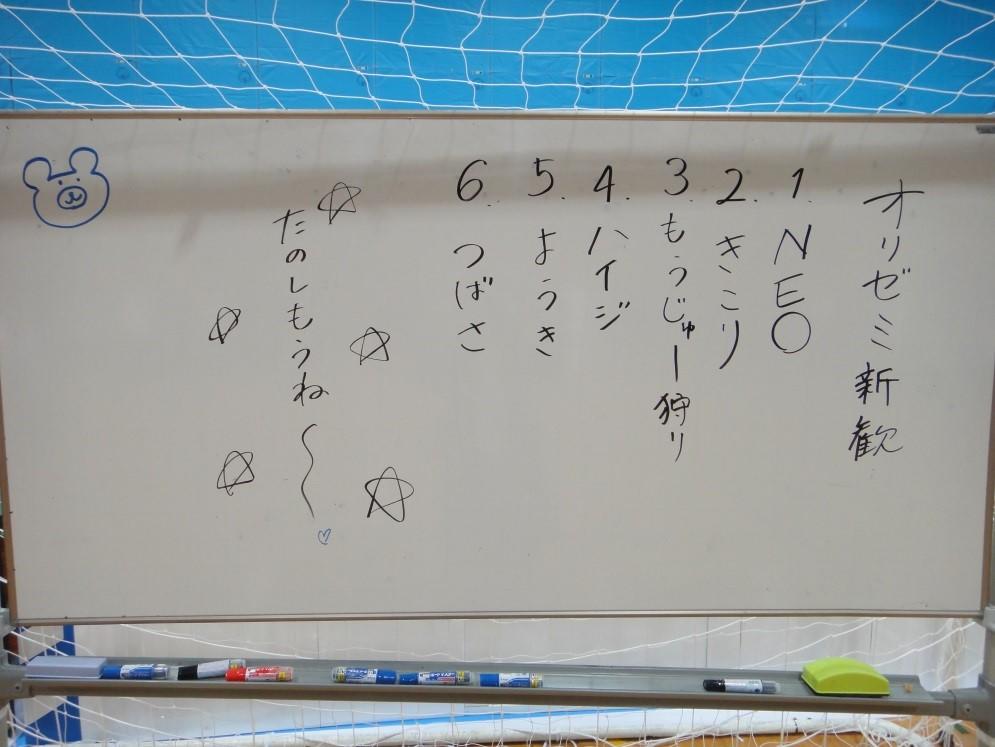 オリゼミ新歓
1. NEO
2. きこり
3. もうじゅー狩り
4. ハイジ
5. ようき
6. つばさ
たのしもうね〜♡